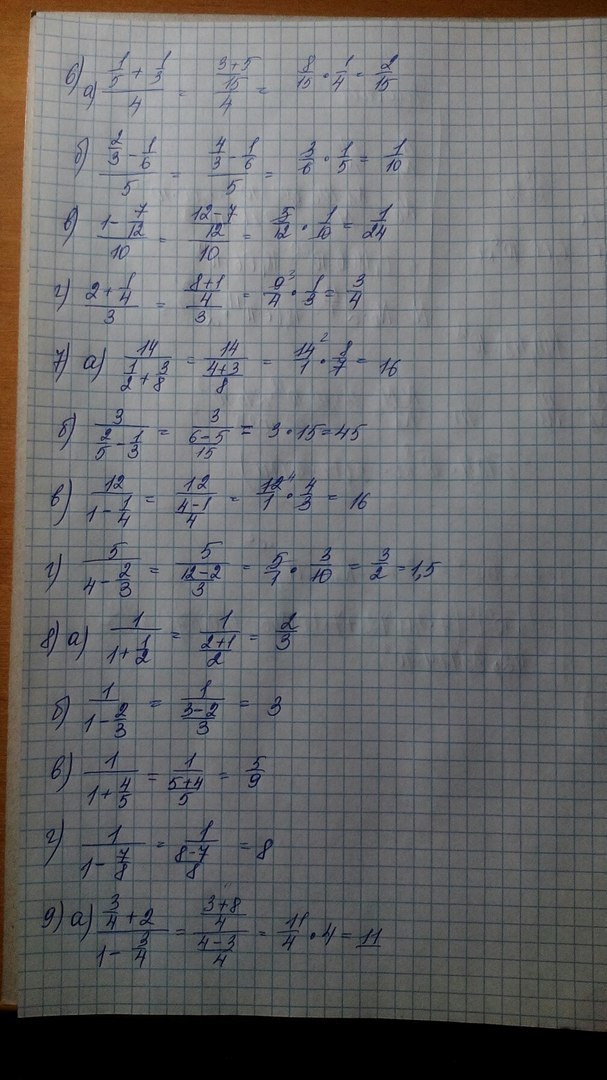 6) а) (1/5 + 1/3)/4 = ((3+5)/15)/4 = 8/15 · 1/4 = 2/15
б) (2/3 - 1/6)/5 = (4/3 - 1/6)/5 = 3/6 · 1/5 = 1/10
в) (1 - 7/12)/10 = ((12-7)/12)/10 = 5/12 · 1/10 = 1/24
г) (2 + 1/4)/3 = ((8+1)/4)/3 = 9³/4 · 1/3 = 3/4
7) а) 14/(1/2 + 3/8) = 14/((4+3)/8) = 14²/1 · 8/7 = 16
б) 3/(2/5 - 1/3) = 3/((6-5)/15) = 3 · 15 = 45
в) 12/(1 - 1/4) = 12/((4-1)/4) = 12⁴/1 · 4/3 = 16
г) 5/(4 - 2/3) = 5/((12-2)/3) = 5/1 · 3/10 = 3/2 = 1,5
8) а) 1/(1 + 1/2) = 1/((2+1)/2) = 2/3
б) 1/(1 - 2/3) = 1/((3-2)/3) = 3
в) 1/(1 + 4/5) = 1/((5+4)/5) = 5/9
г) 1/(1 - 7/8) = 1/((8-7)/8) = 8
9) а) (3/4 + 2)/(1 - 3/4) = ((3+8)/4)/((4-3)/4) = 11/4 · 4 = 11